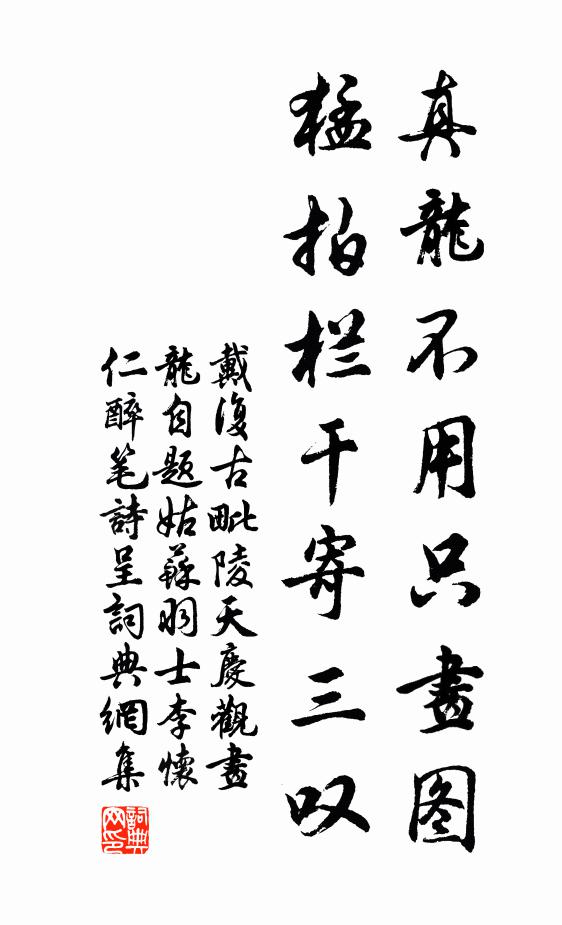 真龍不用只畫图
猛拍栏干寄三叹
戴復古毗陵天慶觀畫
龍自题姑蘇羽士李懷
仁醉笔詩呈詞典網集
詞典
网印